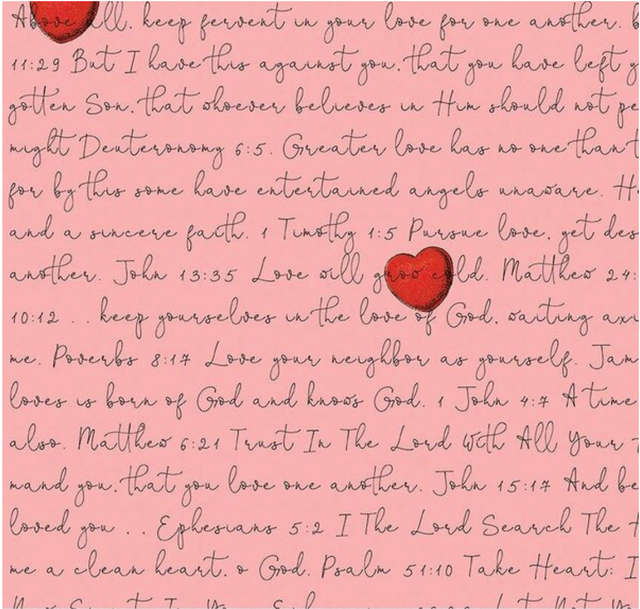 Above all, keep fervent in your love for one another. b
11:29 But I have this against you, that you have left y
gotten Son, that whoever believes in Him should not pe
might Deuteronomy 6:5. Greater love has no one than t
for by this some have entertained angels unaware. H
and a sincere faith. 1 Timothy 1:5 Pursue love, yet des
another. John 13:35 Love will grow cold. Matthew 24:
10:12 . . keep yourselves in the love of God, waiting anxi
me. Poverbs 8:17 Love your neighbor as yourself. Jam
loves is born of God and knows God. 1 John 4:7 A time
also. Matthew 6:21 Trust In The Lord With All Your
mand you, that you love one another. John 15:17 And be
loved you . . Ephesians 5:2 I The Lord Search The
me a clean heart, o God. Psalm 51:10 Take Heart: I